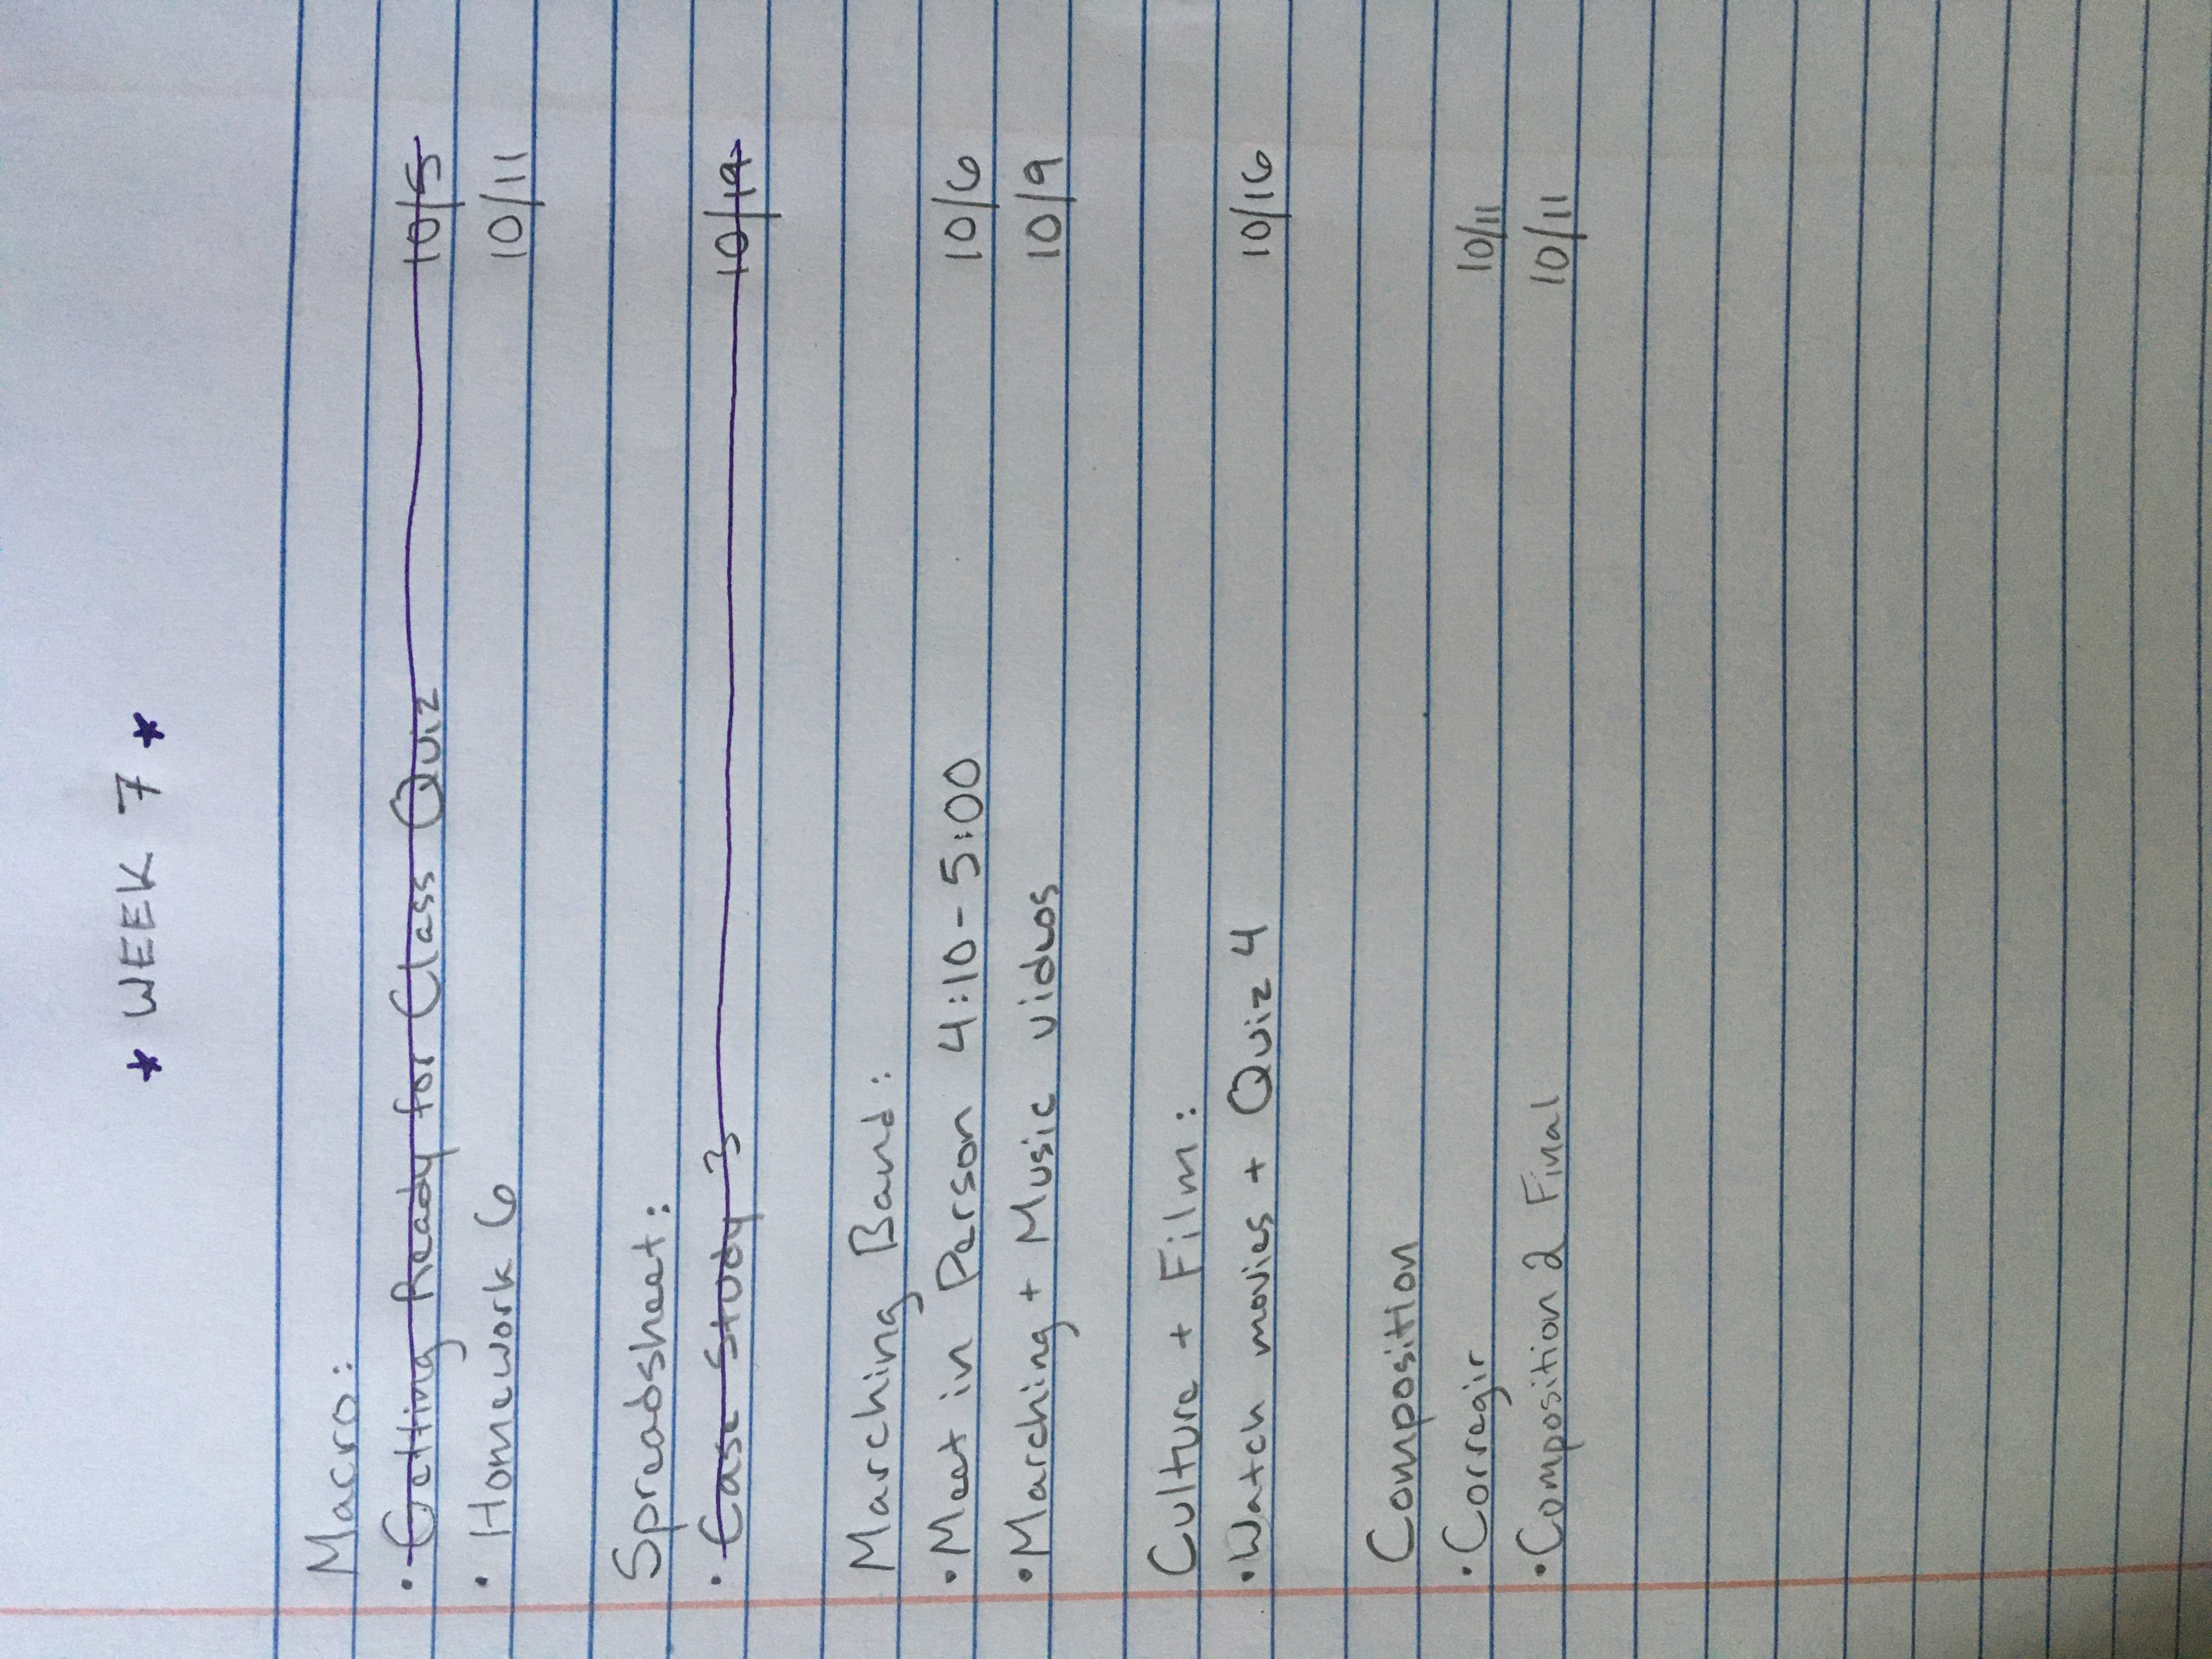 * WEEK 7 *
Macro:
• Getting Ready for Class Quiz 10/5
• Homework 6 10/11
Spreadsheet:
• Case Study 3 10/19
Marching Band:
• Meet in Person 4:10-5:00 10/6
• Marching + Music videos 10/9
Culture + Film:
• Watch movies + Quiz 4 10/16
Composition
• Corregir 10/11
• Composition 2 Final 10/11